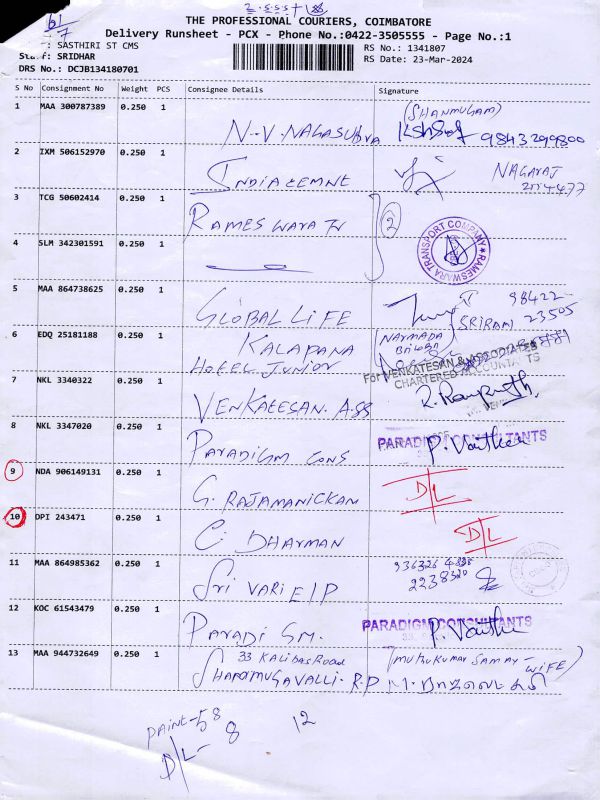 61/7
THE PROFESSIONAL COURIERS, COIMBATORE
Delivery Runsheet - PCX - Phone No:0422-3505555 - Page No.:1
: SASTHIRI ST CMS
RS No.: 1341807
Staff: SRIDHAR
RS Date: 23-Mar-2024
DRS No.: DCJB134180701
S No Consignment No Weight PCS Consignee Details Signature
1 MAA 300787389 0.250 1 N-V-NAGASUBRA (SHANMUGAM) 9843299800
2 IXM 506152970 0.250 1 INDIA CEMNT NAGARAJ
3 TCG 50602414 0.250 1 RAMESWARA TV 2
RAMESWARA TRANSPORT COMPANY
4 SLM 342301591 0.250 1
5 MAA 864738625 0.250 1 GLOBAL LIFE SRIRAM 98422-23505
6 EDQ 25181188 0.250 1 KALAPANA NARMADA
HOTEL JUNIOR
For VENKATESAN & ASSOCIATES
CHARTERED ACCOUNTANTS
7 NKL 3340322 0.250 1 VENKATESAN. ASS
8 NKL 3347020 0.250 1 PARADIGM CONS PARADIGM CONSULTANTS
9 NDA 906149131 0.250 1 G. RAJAMANICKAN D/L
10 DPI 243471 0.250 1 C. DHARMAN D/L
11 MAA 864985362 0.250 1 SRI VARI EIP 2238320
12 KOC 61543479 0.250 1 PARADI GM. PARADIGM CONSULTANTS
13 MAA 944732649 0.250 1 33 KALIDAS ROAD (MUTHUKUMAR SAMAY - WIFE)
SHANMUGAVALLI. R.P
PAINT-58
D/L- 8 12